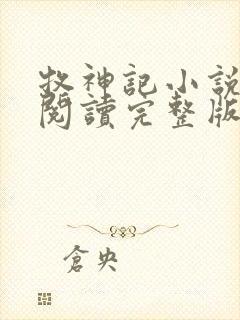 牧神記小說
閱讀完整版
倉央